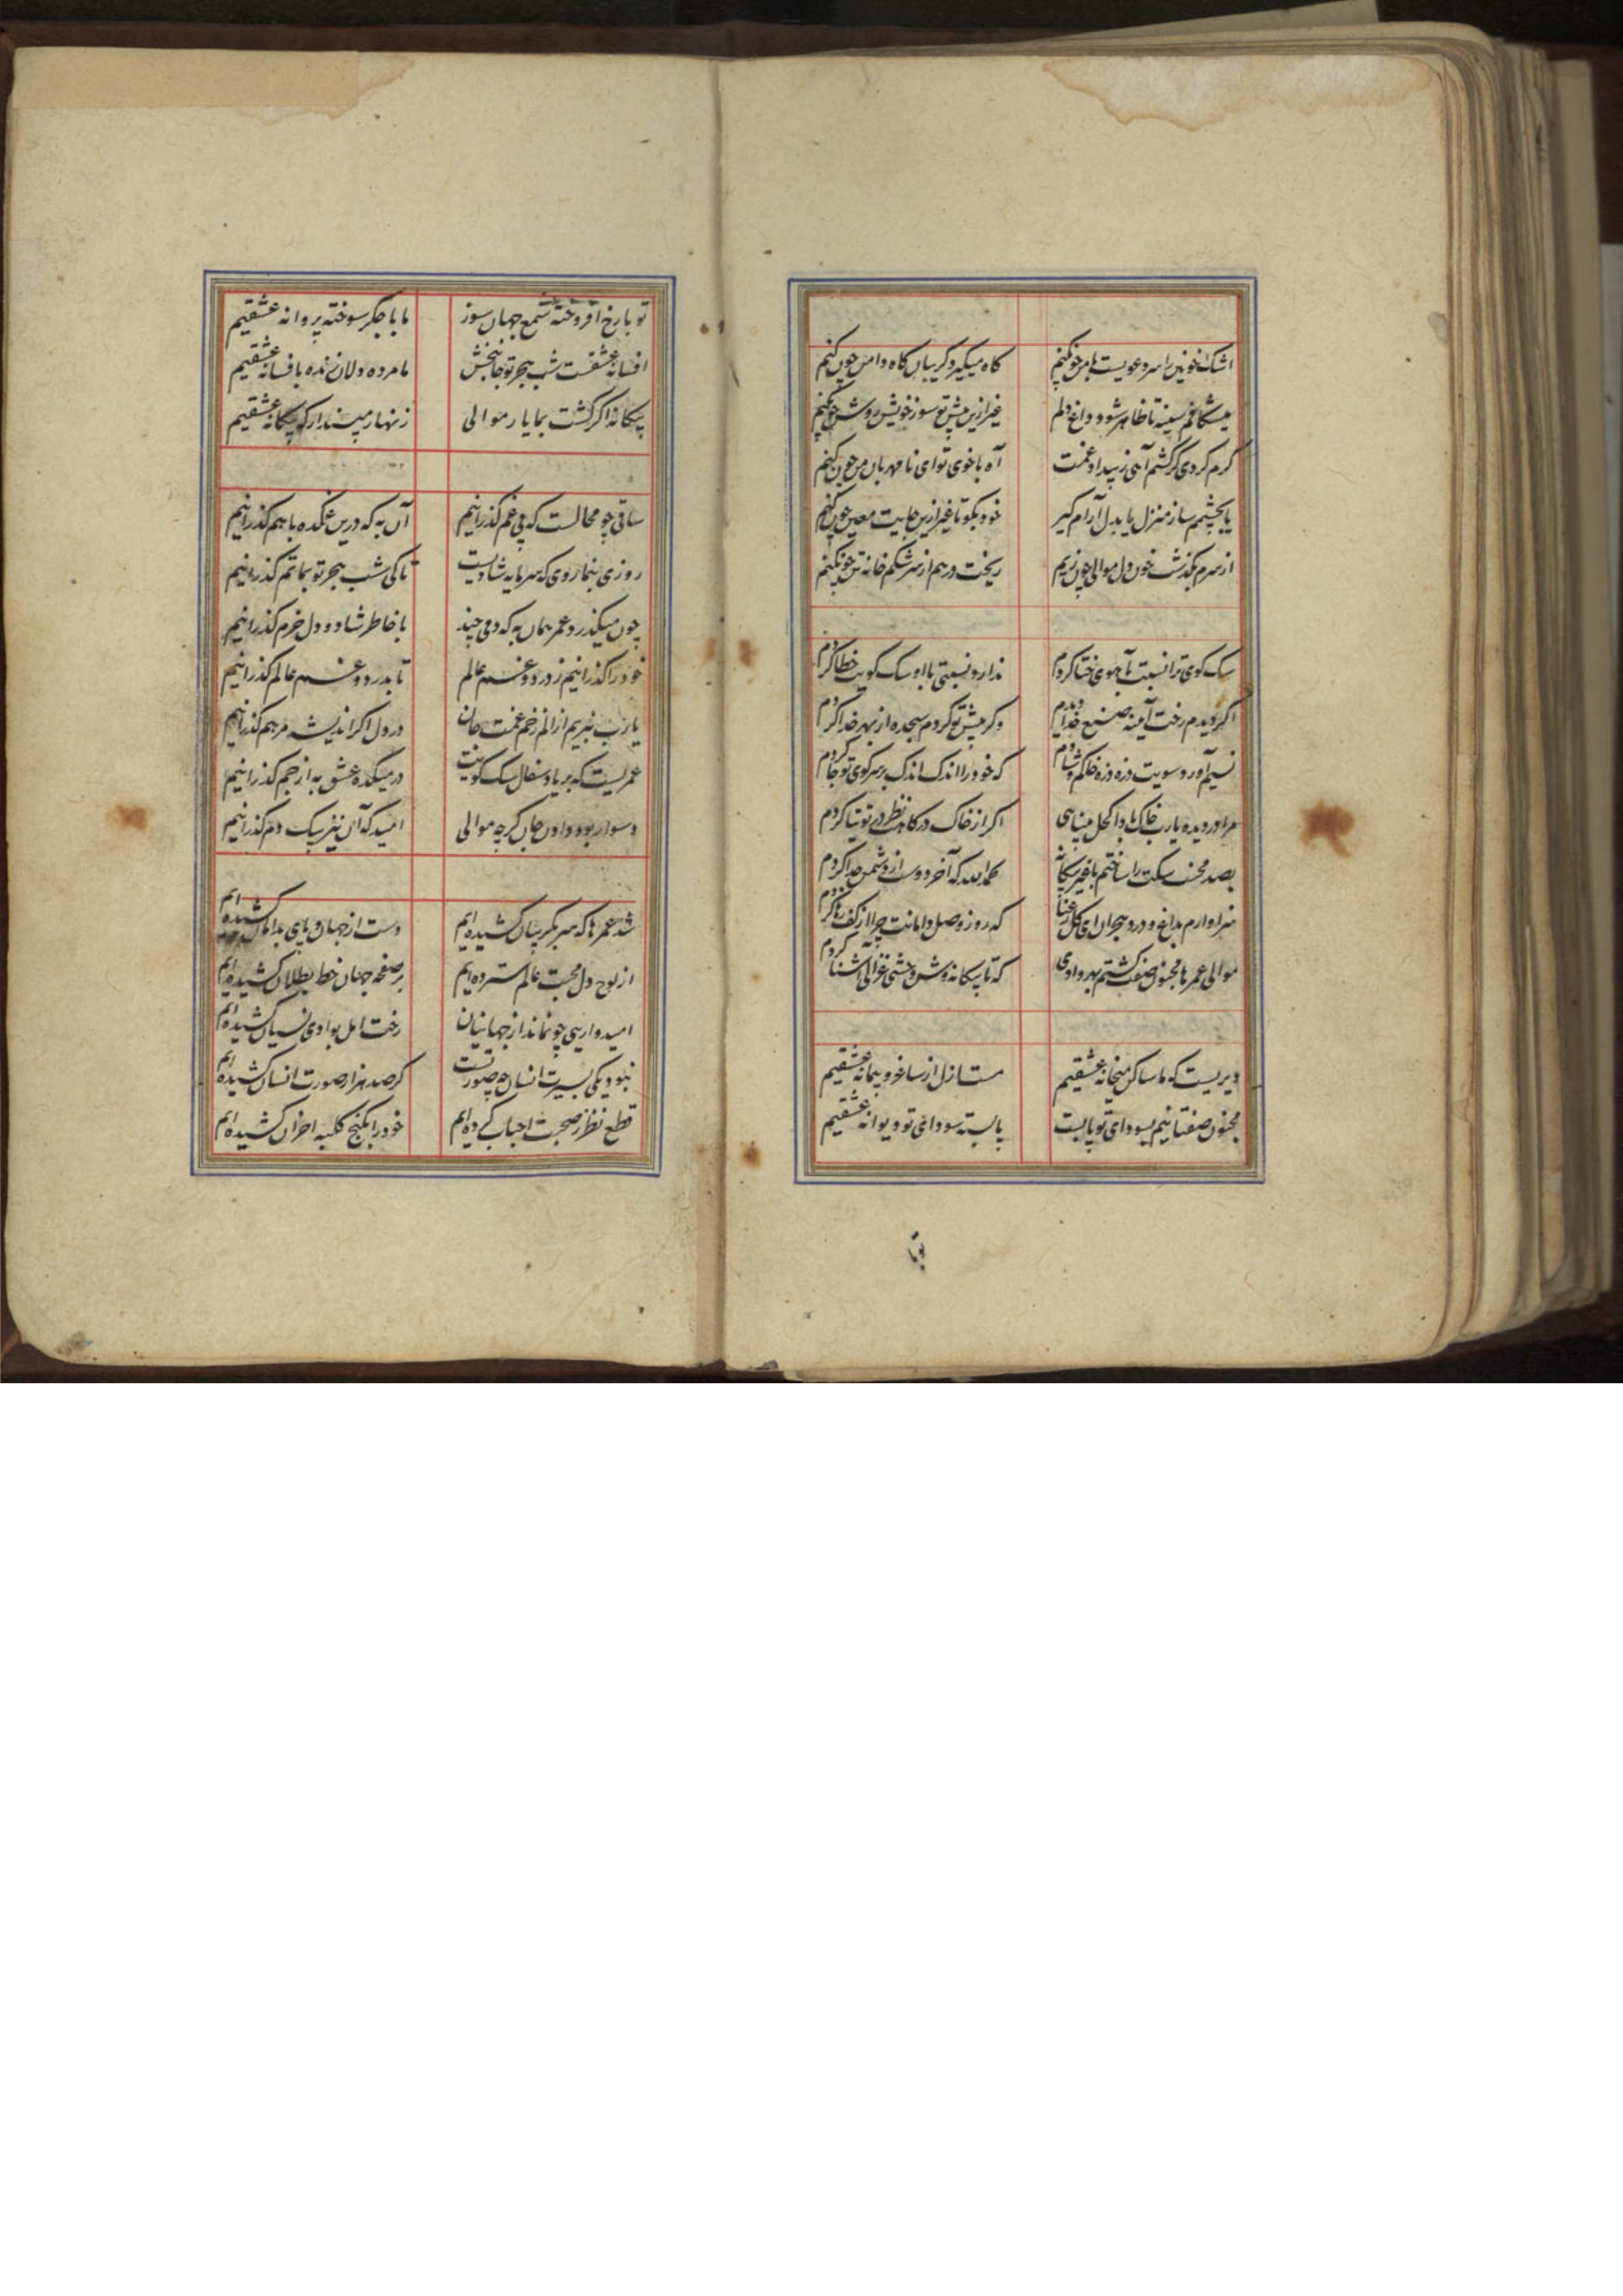 اشک خونین را سر دعویست با من چون کنم گاه میگیرد گریبان گاه دامن چون کنم
میشکافم سینه تا ظاهر شود داغ دلم غیر ازین پیش تو سوز خویش روشن چون کنم
گرم کردی گر کشم آهی ز بیداد غمت آه با خوی تو ای نامهربان من چون کنم
یا بچشمم ساز منزل یا بدل آرام گیر خود بگو تا غیر ازین جایت معین چون کنم
از سرم بگذشت خون دل موالی چون زیم ریخت در هم از سرشکم خانه تن چون کنم
سک کوی ترا نسبت بآهوی ختا کردم ندارد نسبتی با او سک کویت خطا کردم
اگر دیدم رخت آیینه صنع خدا دیدم وگر پیش تو کردم سجده از بهر خدا کردم
نسیم آورد سویت ذره ذره خاکم و شادم که خود را اندک اندک بر سر کوی تو جا کردم
مرا در دیده یارب خاک بادا کحل بینایی اگر از خاک درگاهت نظر در توتیا کردم
بصد محنت سکت را ساختم با غیر بیگانه بحمدالله که آخر دوست از دشمن جدا کردم
سزاوارم بداغ و درد هجران ای گل رعنا که روز وصل دامانت چرا از کف رها کردم
موالی عمرها مجنون صفت گشتم بهر وادی که تا بیگانه وش وحشی غزالی آشنا کردم
دیریست که ما ساکن میخانه عشقیم مست ازل از ساغر و پیمانه عشقیم
مجنون صفتانیم بسودای تو پابست پابسته سودای تو دیوانه عشقیم
تو با
تو با رخ افروخته شمع جهان سوز ما با جگر سوخته پروانه عشقیم
افسانه عشقست شب هجر تو جانبخش ما مرده دلان زنده بافسانه عشقیم
بیگانه اگر گشت بما یار موالی زنهار مپندار که بیگانه عشقیم
ساقی چو محالست که بی غم گذرانیم آن به که درین غمکده با هم گذرانیم
روزی بنما روی که سرمایه شادیست تا کی شب هجر تو بماتم گذرانیم
چون میگذرد عمر همان به که دمی چند با خاطر شاد و دل خرم گذرانیم
خود را گذرانیم ز درد و غم عالم تا بدرد و غم عالم گذرانیم
یارب نبریم از الم زخم غمت جان در دل اگر اندیشه مرهم گذرانیم
عمریست که بر یاد سفال سک کویت در میکده عشق به از جم گذرانیم
دسوار بود دادن جان گرچه موالی امید که آن نیز بیک دم گذرانیم
شد عمرها که سر بگریبان کشیده ایم دست از جهان و پای بدامان کشیده ایم
از لوح دل محبت عالم سترده ایم بر صفحه جهان خط بطلان کشیده ایم
امیدواریی چو نماند از جهانیان رخت امل بوادی نسیان کشیده ایم
نبود یکی بسیرت انسان چه صورتست گر صد هزار صورت انسان کشیده ایم
قطع نظر ز صحبت احباب کرده ایم خود را بکنج کلبه احزان کشیده ایم